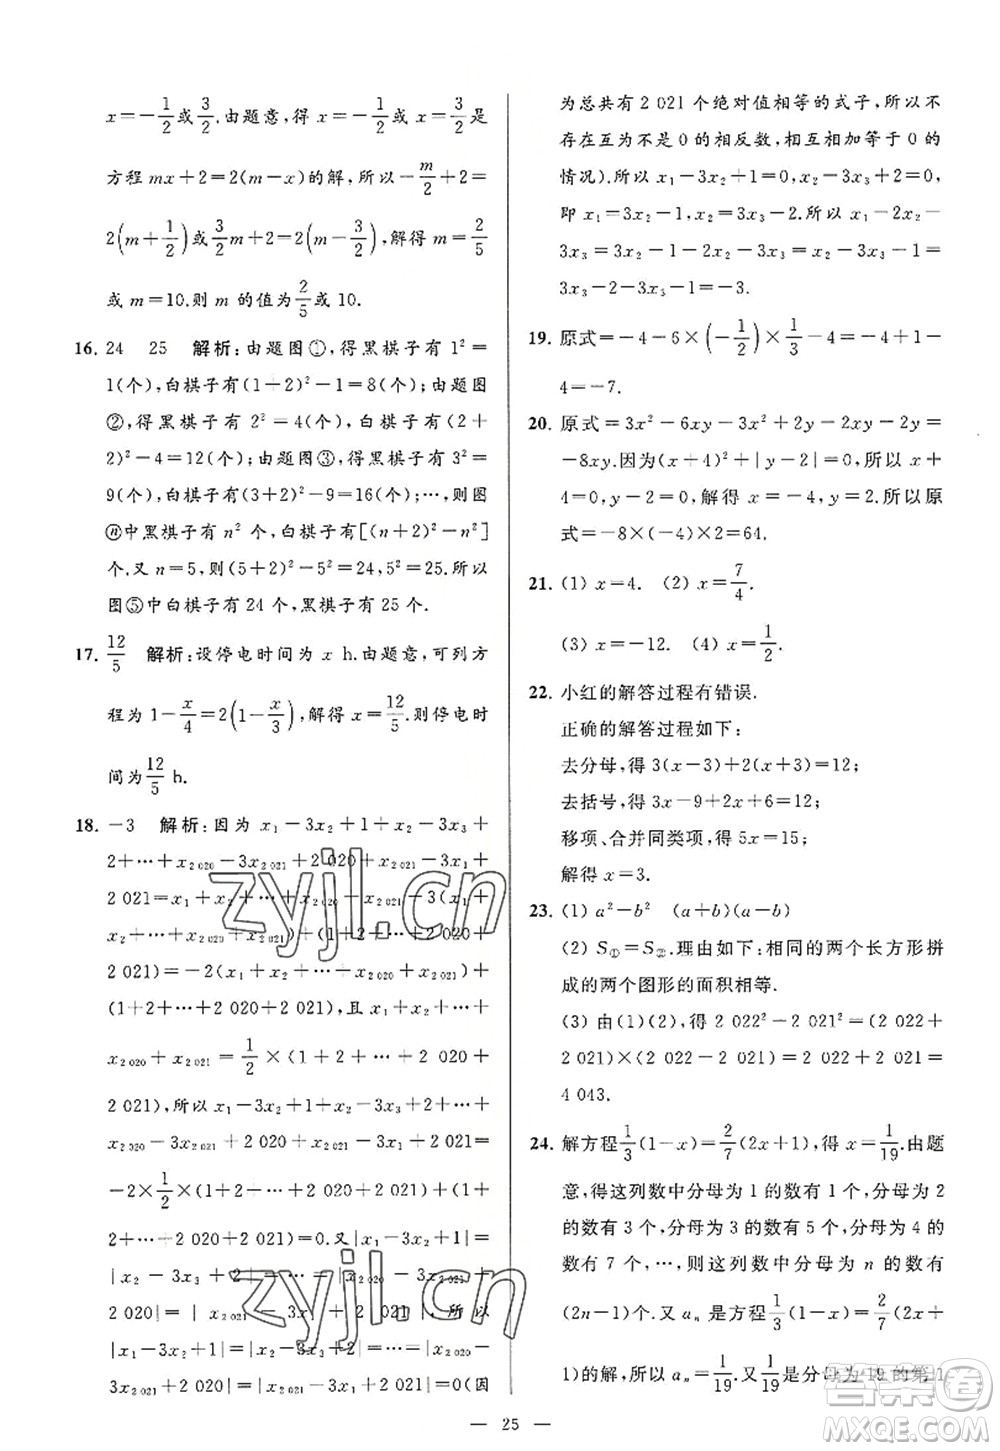 x=-1/2或3/2.由题意,得x=-1/2或3/2是
方程mx+2=2(m-x)的解,所以-m/2+2=
2(m+1/2)或3/2m+2=2(m-3/2),解得m=2/5
或m=10.则m的值为2/5或10.
16. 24 25 解析:由题图①,得黑棋子有1²=
1(个),白棋子有(1+2)²-1=8(个);由题图
②,得黑棋子有2²=4(个),白棋子有(2+
2)²-4=12(个);由题图③,得黑棋子有3²=
9(个),白棋子有(3+2)²-9=16(个);…,则图
ⓝ中黑棋子有n²个,白棋子有[(n+2)²-n²]
个.又n=5,则(5+2)²-5²=24,5²=25.所以
图⑤中白棋子有24个,黑棋子有25个.
17. 12/5 解析:设停电时间为x h.由题意,可列方
程为1-x/4=2(1-x/3),解得x=12/5.则停电时
间为12/5 h.
18. -3 解析:因为x₁-3x₂+1+x₂-3x₃+
2+…+x₂₀₂₀-3x₂₀₂₁+2 020+x₂₀₂₁-3x₁+
2 021=x₁+x₂+…+x₂₀₂₁-3(x₁+
x₂+…+x₂₀₂₁)+(1+2+…+2 020+
2 021)=-2(x₁+x₂+…+x₂₀₂₁)+
(1+2+…+2 020+2 021),且x₁+x₂+…+
x₂₀₂₀+x₂₀₂₁=1/2×(1+2+…+2 020+
2 021),所以x₁-3x₂+1+x₂-3x₃+2+…+
x₂₀₂₀-3x₂₀₂₁+2 020+x₂₀₂₁-3x₁+2 021=
-2×1/2×(1+2+…+2 020+2 021)+(1+
2+…+2 020+2 021)=0.又|x₁-3x₂+1|=
|x₂-3x₃+2|=…=|x₂₀₂₀-3x₂₀₂₁+
2 020|=|x₂₀₂₁-3x₁+2 021|,所以
|x₁-3x₂+1|=|x₂-3x₃+2|=…=
|x₂₀₂₁-3x₁+2 021|=0(因
为总共有2 021个绝对值相等的式子,所以不
存在互为不是0的相反数,相互相加等于0的
情况).所以x₁-3x₂+1=0,x₂-3x₃+2=0,
即x₁=3x₂-1,x₂=3x₃-2.所以x₁-2x₂-
3x₃=3x₂-1-2x₂-3x₃=x₂-3x₃-1=
3x₃-2-3x₃-1=-3.
19. 原式=-4-6×(-1/2)×1/3-4=-4+1-
4=-7.
20. 原式=3x²-6xy-3x²+2y-2xy-2y=
-8xy.因为(x+4)²+|y-2|=0,所以x+
4=0,y-2=0,解得x=-4,y=2.所以原
式=-8×(-4)×2=64.
21. (1) x=4. (2) x=7/4.
(3) x=-12. (4) x=1/2.
22. 小红的解答过程有错误.
正确的解答过程如下:
去分母,得3(x-3)+2(x+3)=12;
去括号,得3x-9+2x+6=12;
移项、合并同类项,得5x=15;
解得x=3.
23. (1) a²-b² (a+b)(a-b)
(2) S①=S②.理由如下:相同的两个长方形拼
成的两个图形的面积相等.
(3) 由(1)(2),得2 022²-2 021²=(2 022+
2 021)×(2 022-2 021)=4 043×1=
4 043.
24. 解方程1/3(1-x)=2/7(2x+1),得x=1/19.由题
意,得这列数中分母为1的数有1个,分母为2
的数有3个,分母为3的数有5个,分母为4的
数有7个,…,则这列数中分母为n的数有
(2n-1)个.又aₙ是方程1/3(1-x)=2/7(2x+
1)的解,所以aₙ=1/19.又1/19是分母为19的第1
— 25 —
zyjl.cn
zyjl.cn
答案圈
MXQE.COM